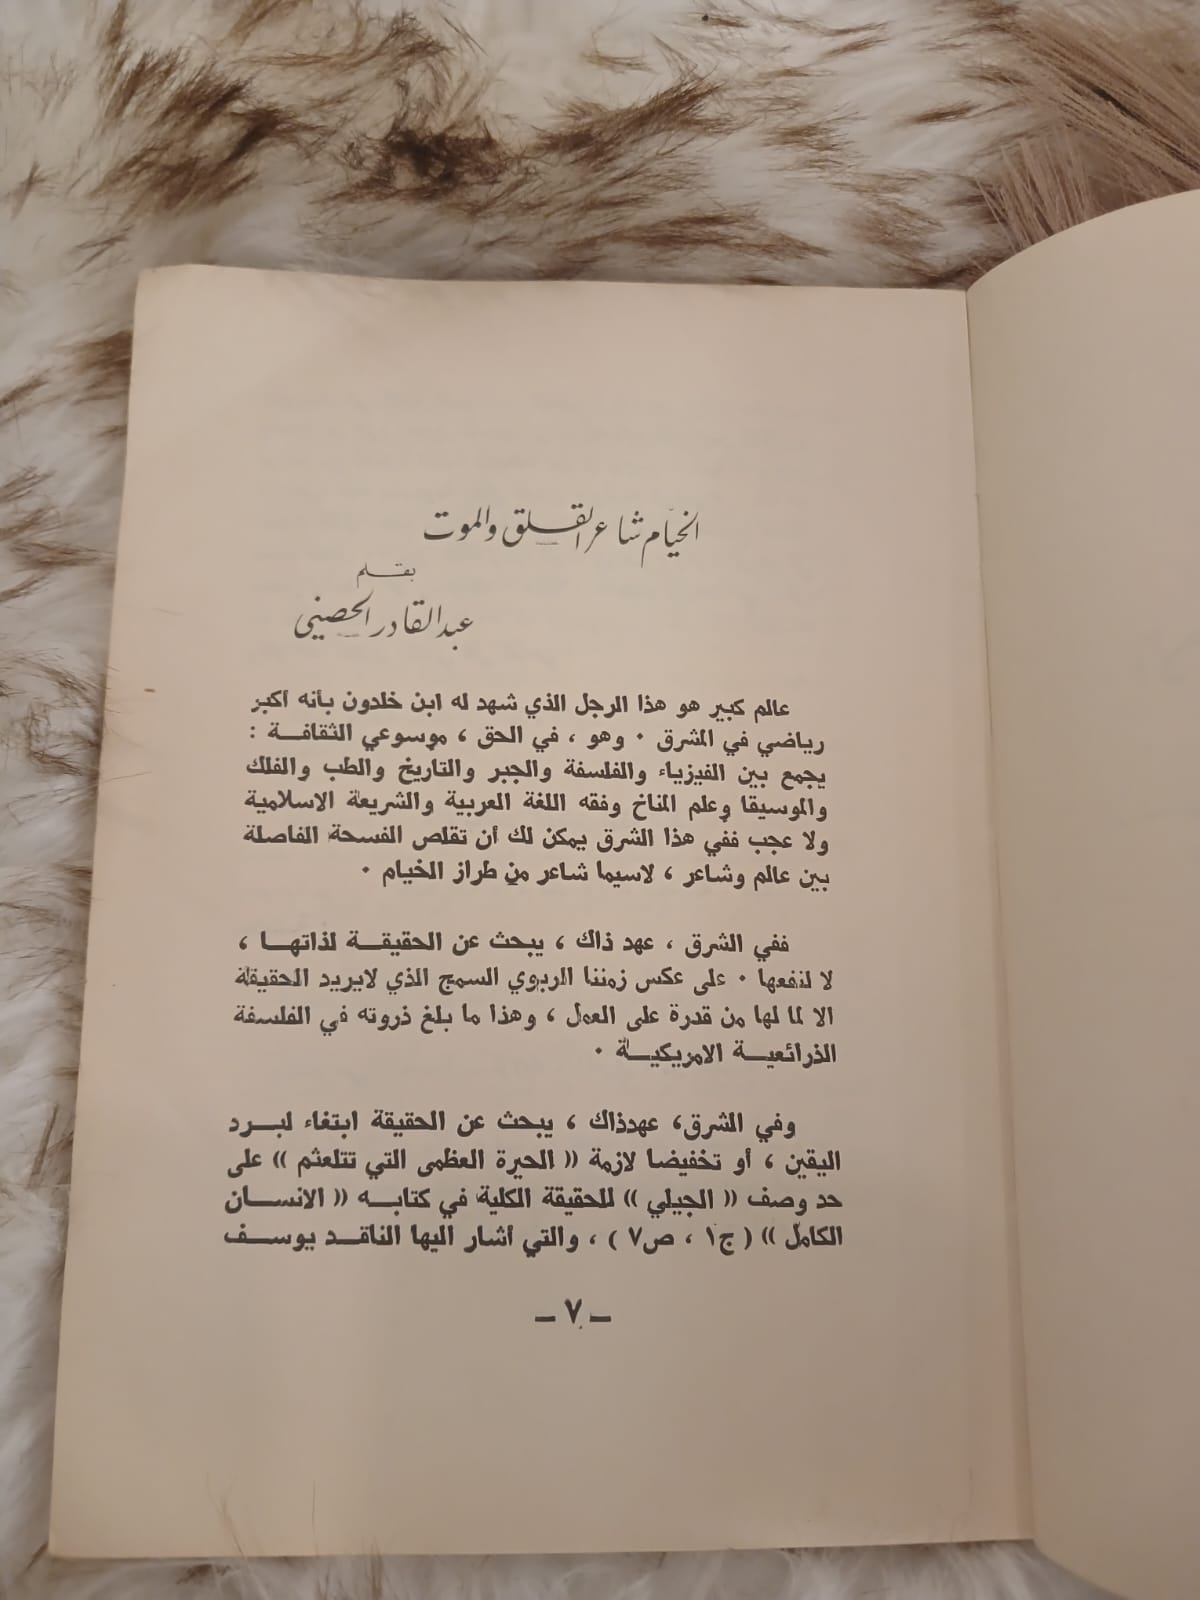 الخيّام شاعر القلق والموت
بقلم
عبد القادر الحصيني
عالم كبير هو هذا الرجل الذي شهد له ابن خلدون بأنه أكبر
رياضي في المشرق ٠ وهو ، في الحق ، موسوعي الثقافة :
يجمع بين الفيزياء والفلسفة والجبر والتاريخ والطب والفلك
والموسيقا وعلم المناخ وفقه اللغة العربية والشريعة الاسلامية
ولا عجب ففي هذا الشرق يمكن لك أن تقلص الفسحة الفاصلة
بين عالم وشاعر ، لاسيما شاعر من طراز الخيام ٠
ففي الشرق ، عهد ذاك ، يبحث عن الحقيقة لذاتها ،
لا لنفعها ٠ على عكس زمننا الربوي السمج الذي لايريد الحقيقة
الا لما لها من قدرة على العمل ، وهذا ما بلغ ذروته في الفلسفة
الذرائعية الامريكية ٠
وفي الشرق، عهدذاك ، يبحث عن الحقيقة ابتغاء لبرد
اليقين ، أو تخفيضا لازمة (( الحيرة العظمى التي تتلعثم )) على
حد وصف (( الجيلي )) للحقيقة الكلية في كتابه (( الانسان
الكامل )) ( ج١ ، ص٧ ) ، والتي أشار اليها الناقد يوسف
– ٧ –